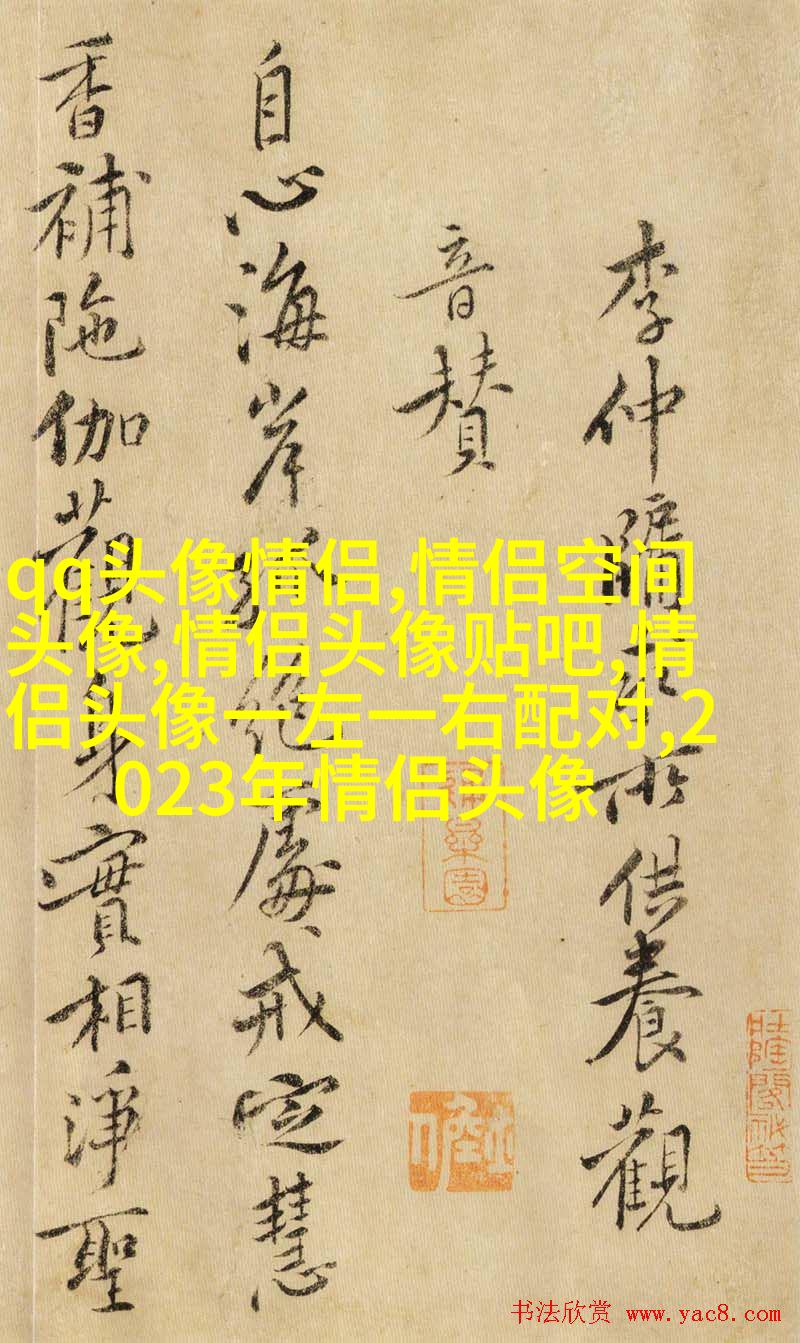 李仲所供養觀
音赞
自心海岸孤絕處戒定慧
香補陁伽觀身實相淨聖
qq头像情侣,情侣空间
头像,情侣头像贴吧,情
侣头像一左一右配对,2
023年情侣头像
书法欣赏 www.yac8.com